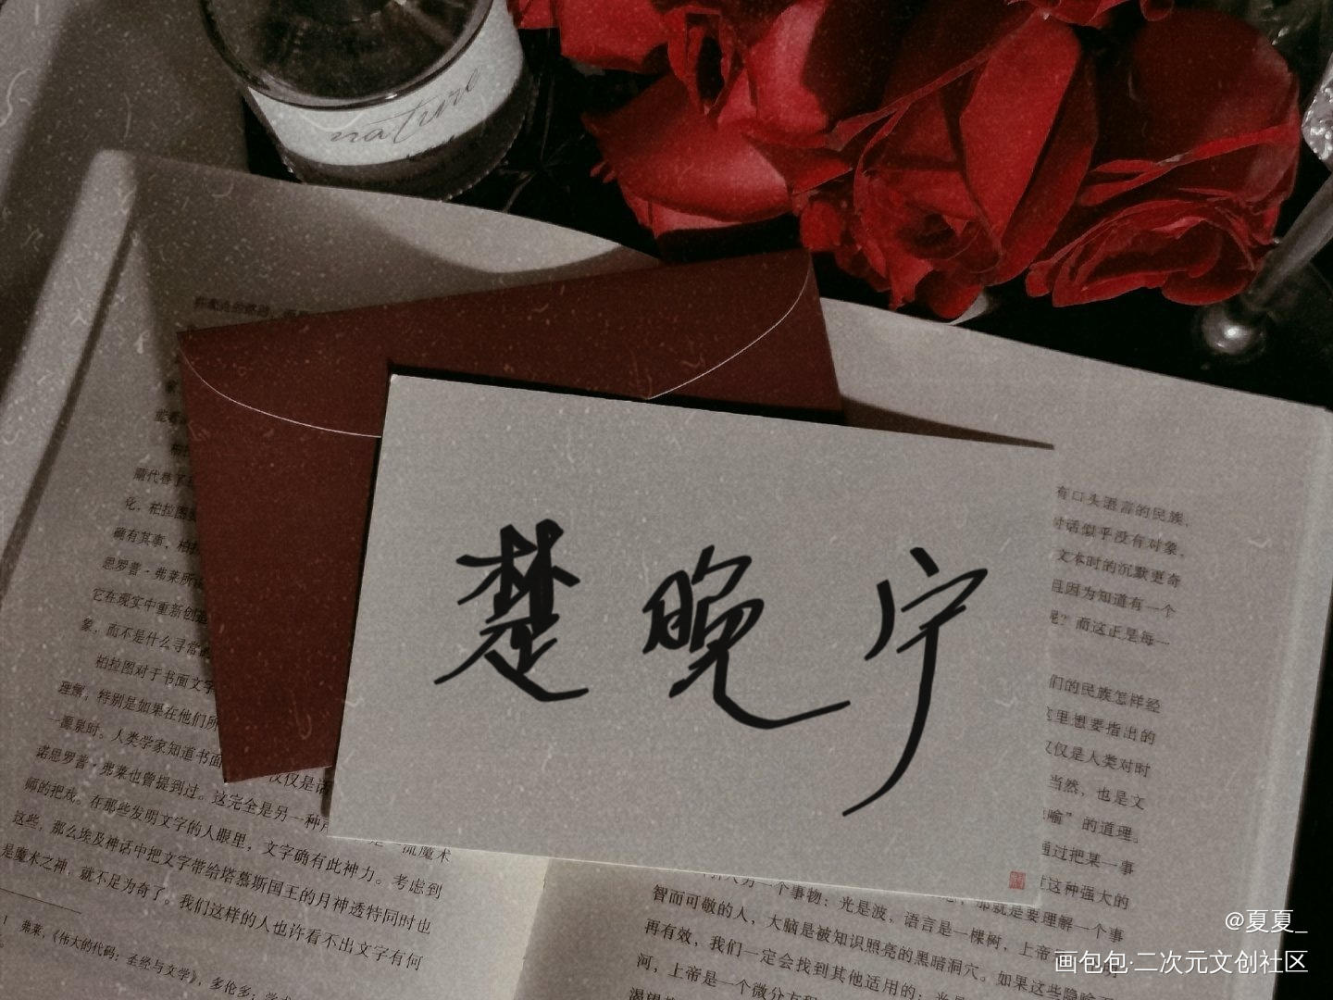 nature
楚晚宁
化，柏拉图
确有其事，柏拉
思罗普·弗莱所
它在现实中重新创造
象，而不是什么寻常的
柏拉图对于书面文字
雅懈，特别是如果在他们所
一派景时。人类学家知道书面
诺思罗普·弗莱也曾提到过。这完全是另一种
师的把戏。在那些发明文字的人眼里，文字确有此神力。考虑到
这些，那么埃及神话中把文字带给塔慕斯国王的月神透特同时也
是魔术之神，就不足为奇了。我们这样的人也许看不出文字有何
1 弗莱，《伟大的代码：圣经与文学》，多伦多：学术
有口头语言的民族，
对话似乎没有对象，
文本时的沉默更奇
且因为知道有一个
们的民族怎样经
这里想要指出的
仅仅是人类对时
当然，也是文
喻”的道理。
通过把某一事
这种强大的
个事物：光是波，语言是一棵树，上帝
智而可敬的人，大脑是被知识照亮的黑暗洞穴。如果这些隐喻
再有效，我们一定会找到其他适用的：光是
河，上帝是一个微分方程
@夏夏_
画包包·二次元文创社区